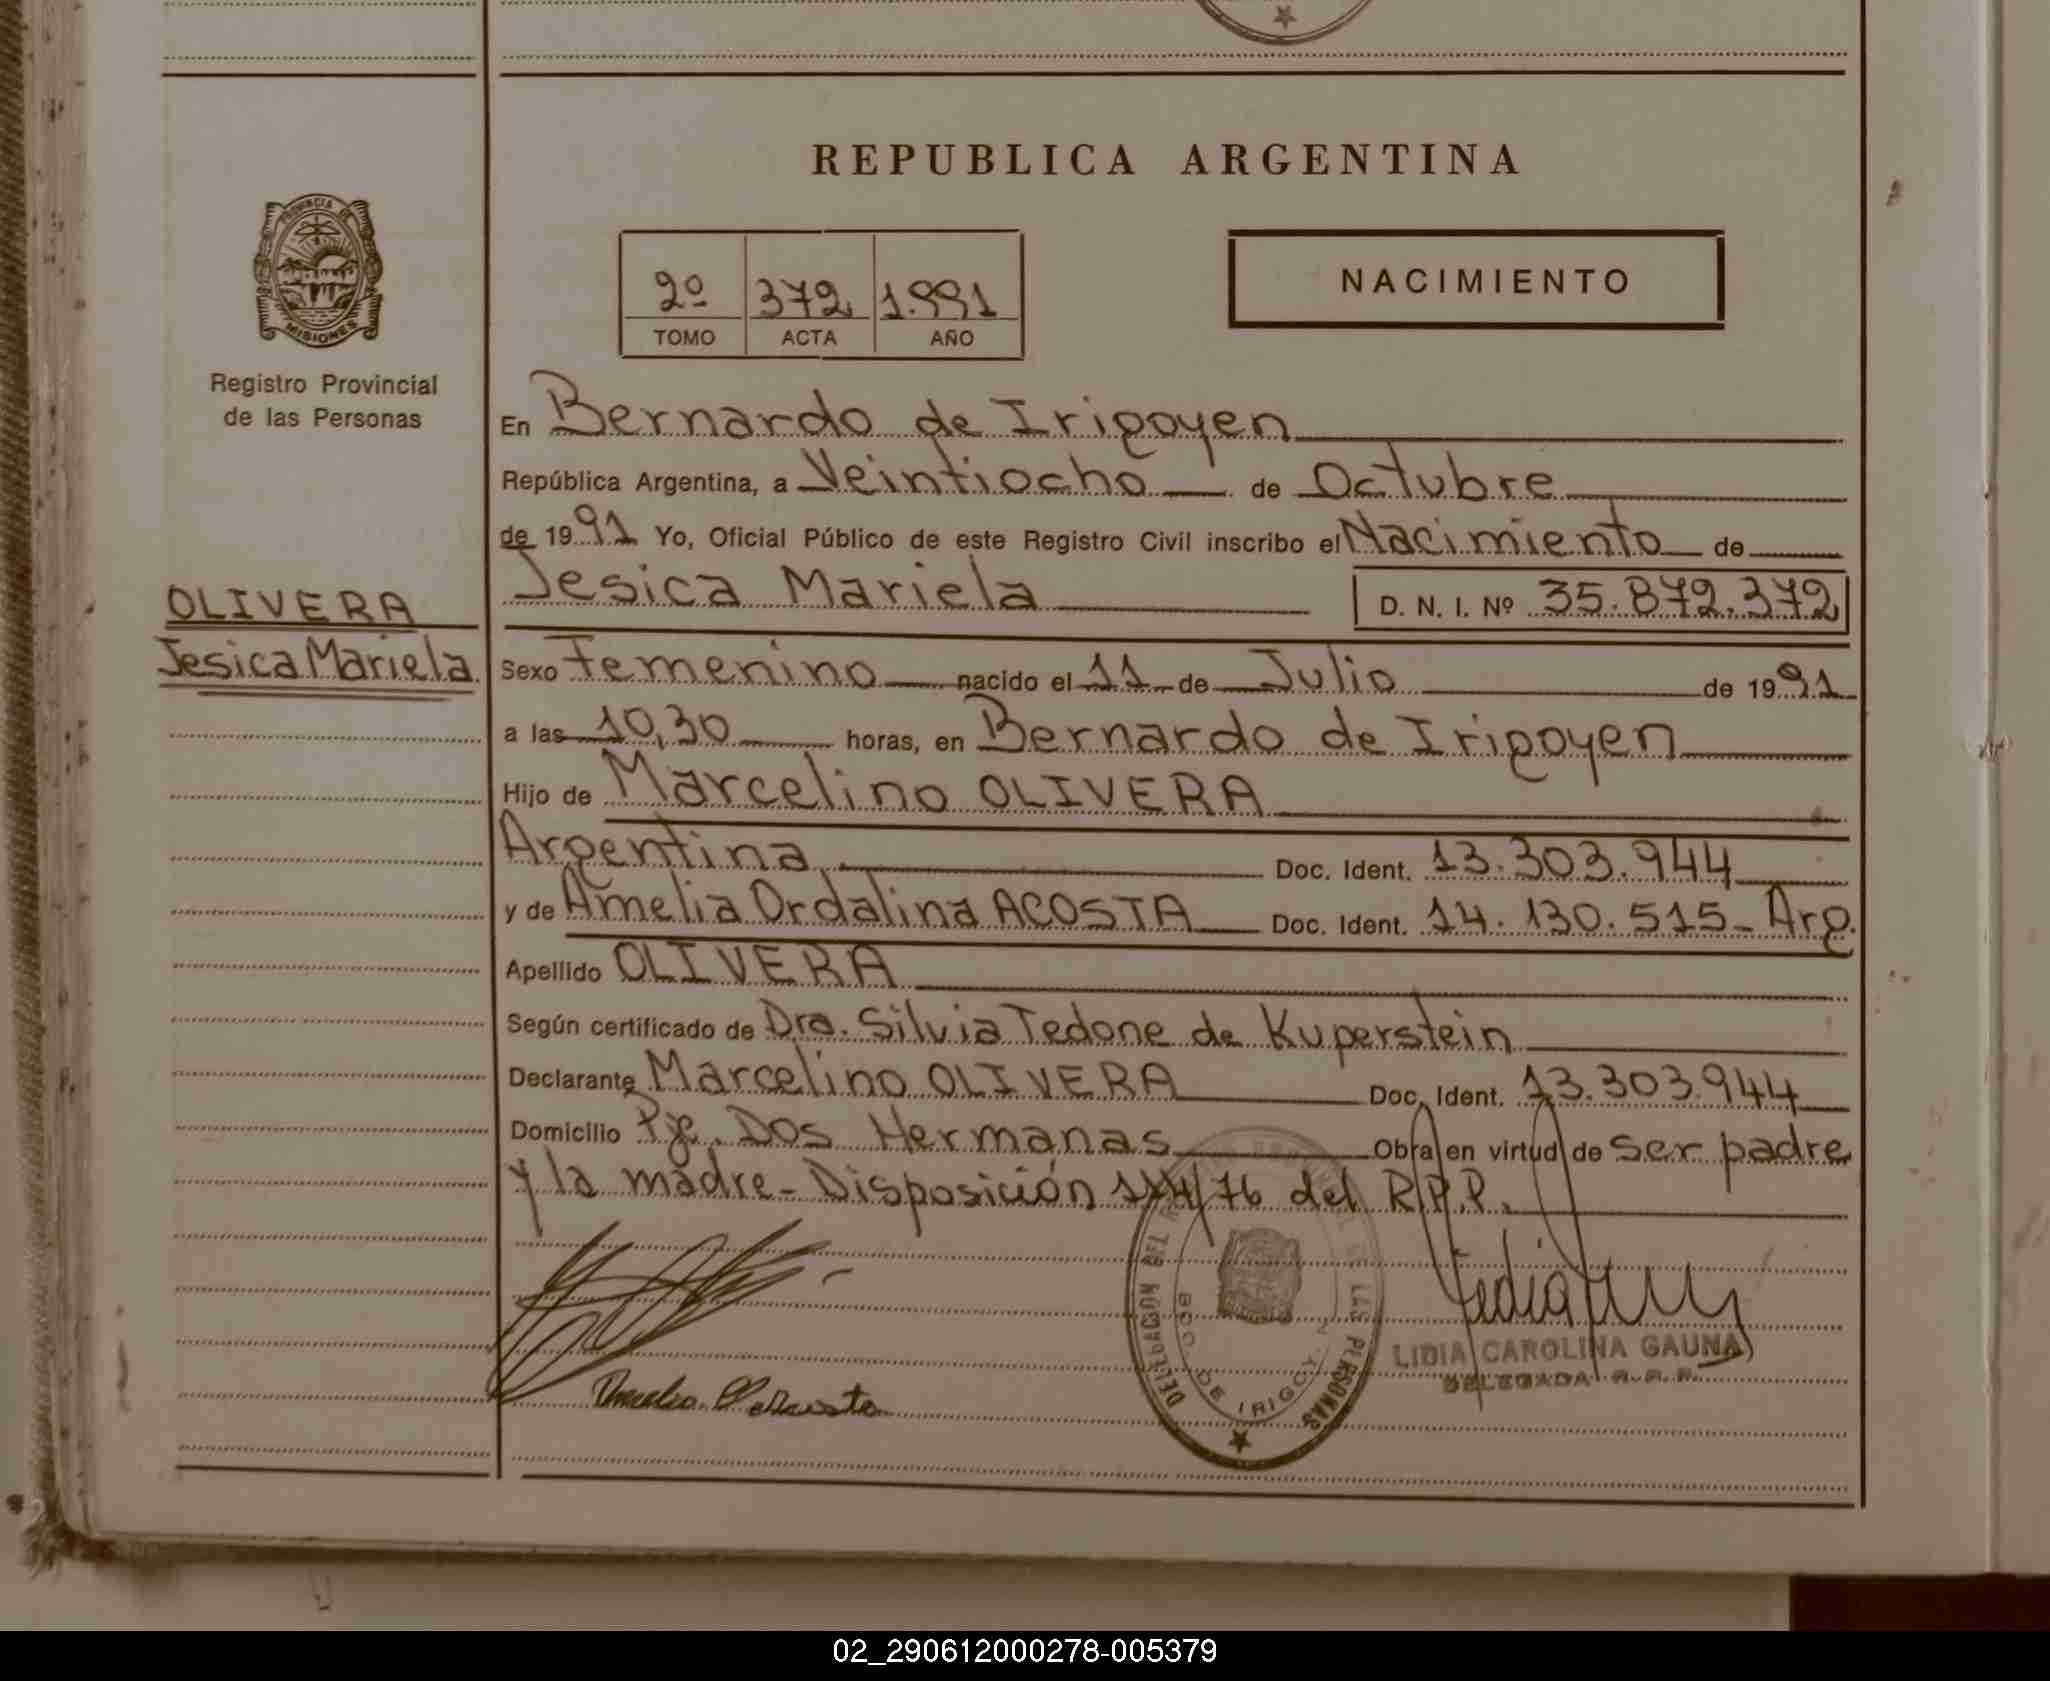 REPUBLICA ARGENTINA
PROVINCIA DE MISIONES
Registro Provincial
de las Personas
2º 372 1.991
TOMO ACTA AÑO
NACIMIENTO
En Bernardo de Irigoyen
República Argentina, a Veintiocho de Octubre
de 1991 Yo, Oficial Público de este Registro Civil inscribo el Nacimiento de
OLIVERA
Jesica Mariela
Jesica Mariela D. N. I. Nº 35.872.372
Sexo Femenino nacido el 11 de Julio de 1991
a las 10,30 horas, en Bernardo de Irigoyen
Hijo de Marcelino OLIVERA
Argentina Doc. Ident. 13.303.944
y de Amelia Ordalina ACOSTA Doc. Ident. 14.130.515- Arg.
Apellido OLIVERA
Según certificado de Dra. Silvia Tedone de Kuperstein
Declarante Marcelino OLIVERA Doc. Ident. 13.303.944
Domicilio Pje. Dos Hermanas Obra en virtud de ser padre
y la madre- Disposición 114/76 del R.P.P.
DELEGACION DEL LAS PERSONAS
BDO. DE IRIGOYEN
LIDIA CAROLINA GAUNA
DELEGADA R.P.P.
02_290612000278-005379